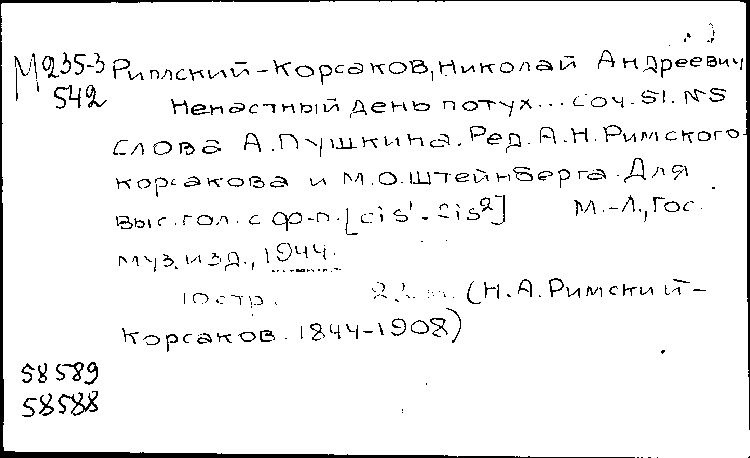 М235-3 Римский-Корсаков, Николай Андреевич
542 Ненастный день потух... Соч. 51. №5
слова А. Пушкина. Ред. А.Н. Римского-
Корсакова и М.О. Штейнберга. Для
выс. гол. с ф-п. [cis¹-fis²] М.-Л., Гос.
муз. изд., 1944.
10 стр. (Н.А. Римский-
Корсаков. 1844-1908)
58589
58588